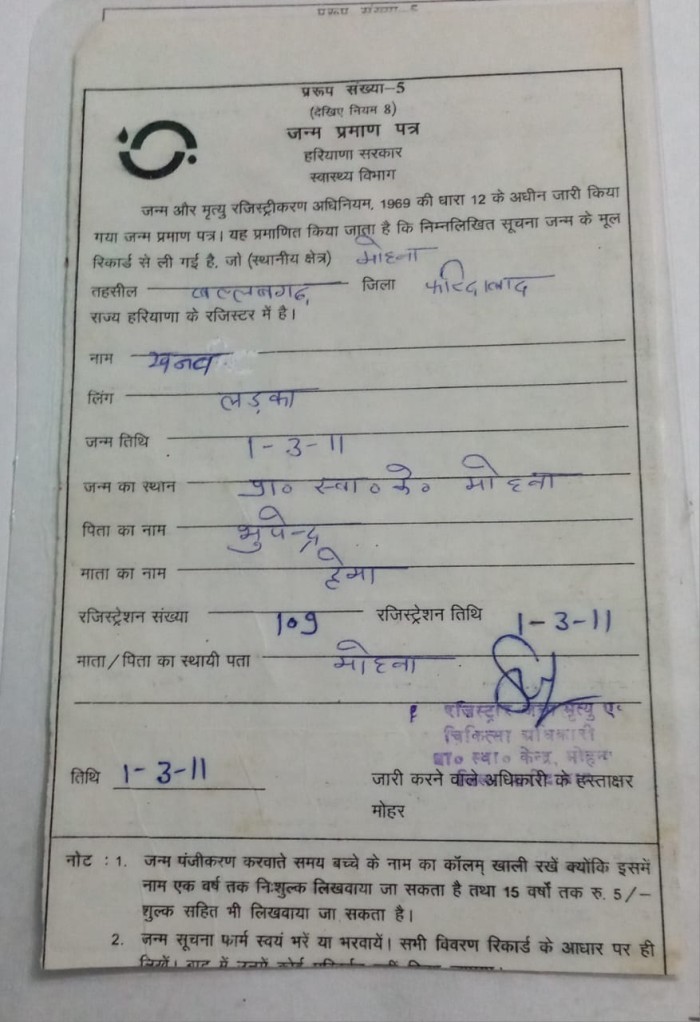 प्ररूप संख्या-5
(देखिए नियम 8)
जन्म प्रमाण पत्र
हरियाणा सरकार
स्वास्थ्य विभाग
जन्म और मृत्यु रजिस्ट्रीकरण अधिनियम, 1969 की धारा 12 के अधीन जारी किया
गया जन्म प्रमाण पत्र। यह प्रमाणित किया जाता है कि निम्नलिखित सूचना जन्म के मूल
रिकार्ड से ली गई है, जो (स्थानीय क्षेत्र) मोहना
तहसील बल्लबगढ़ जिला फरिदाबाद
राज्य हरियाणा के रजिस्टर में है।
नाम
लिंग लड़का
जन्म तिथि 1-3-11
जन्म का स्थान प्रा० स्वा० के० मोहना
पिता का नाम भुपेन्द्र
माता का नाम हेमा
रजिस्ट्रेशन संख्या 109 रजिस्ट्रेशन तिथि 1-3-11
माता/पिता का स्थायी पता मोहना
मृत्यु एं
चिकित्सा अधिकारी
प्रा० स्वा० केन्द्र, मोहना
तिथि 1-3-11 जारी करने वाले अधिकारी के हस्ताक्षर
मोहर
नोट : 1. जन्म पंजीकरण करवाते समय बच्चे के नाम का कॉलम् खाली रखें क्योकि इसमें
नाम एक वर्ष तक निःशुल्क लिखवाया जा सकता है तथा 15 वर्षो तक रु. 5/-
शुल्क सहित भी लिखवाया जा सकता है।
2. जन्म सूचना फार्म स्वयं भरें या भरवायें। सभी विवरण रिकार्ड के आधार पर ही